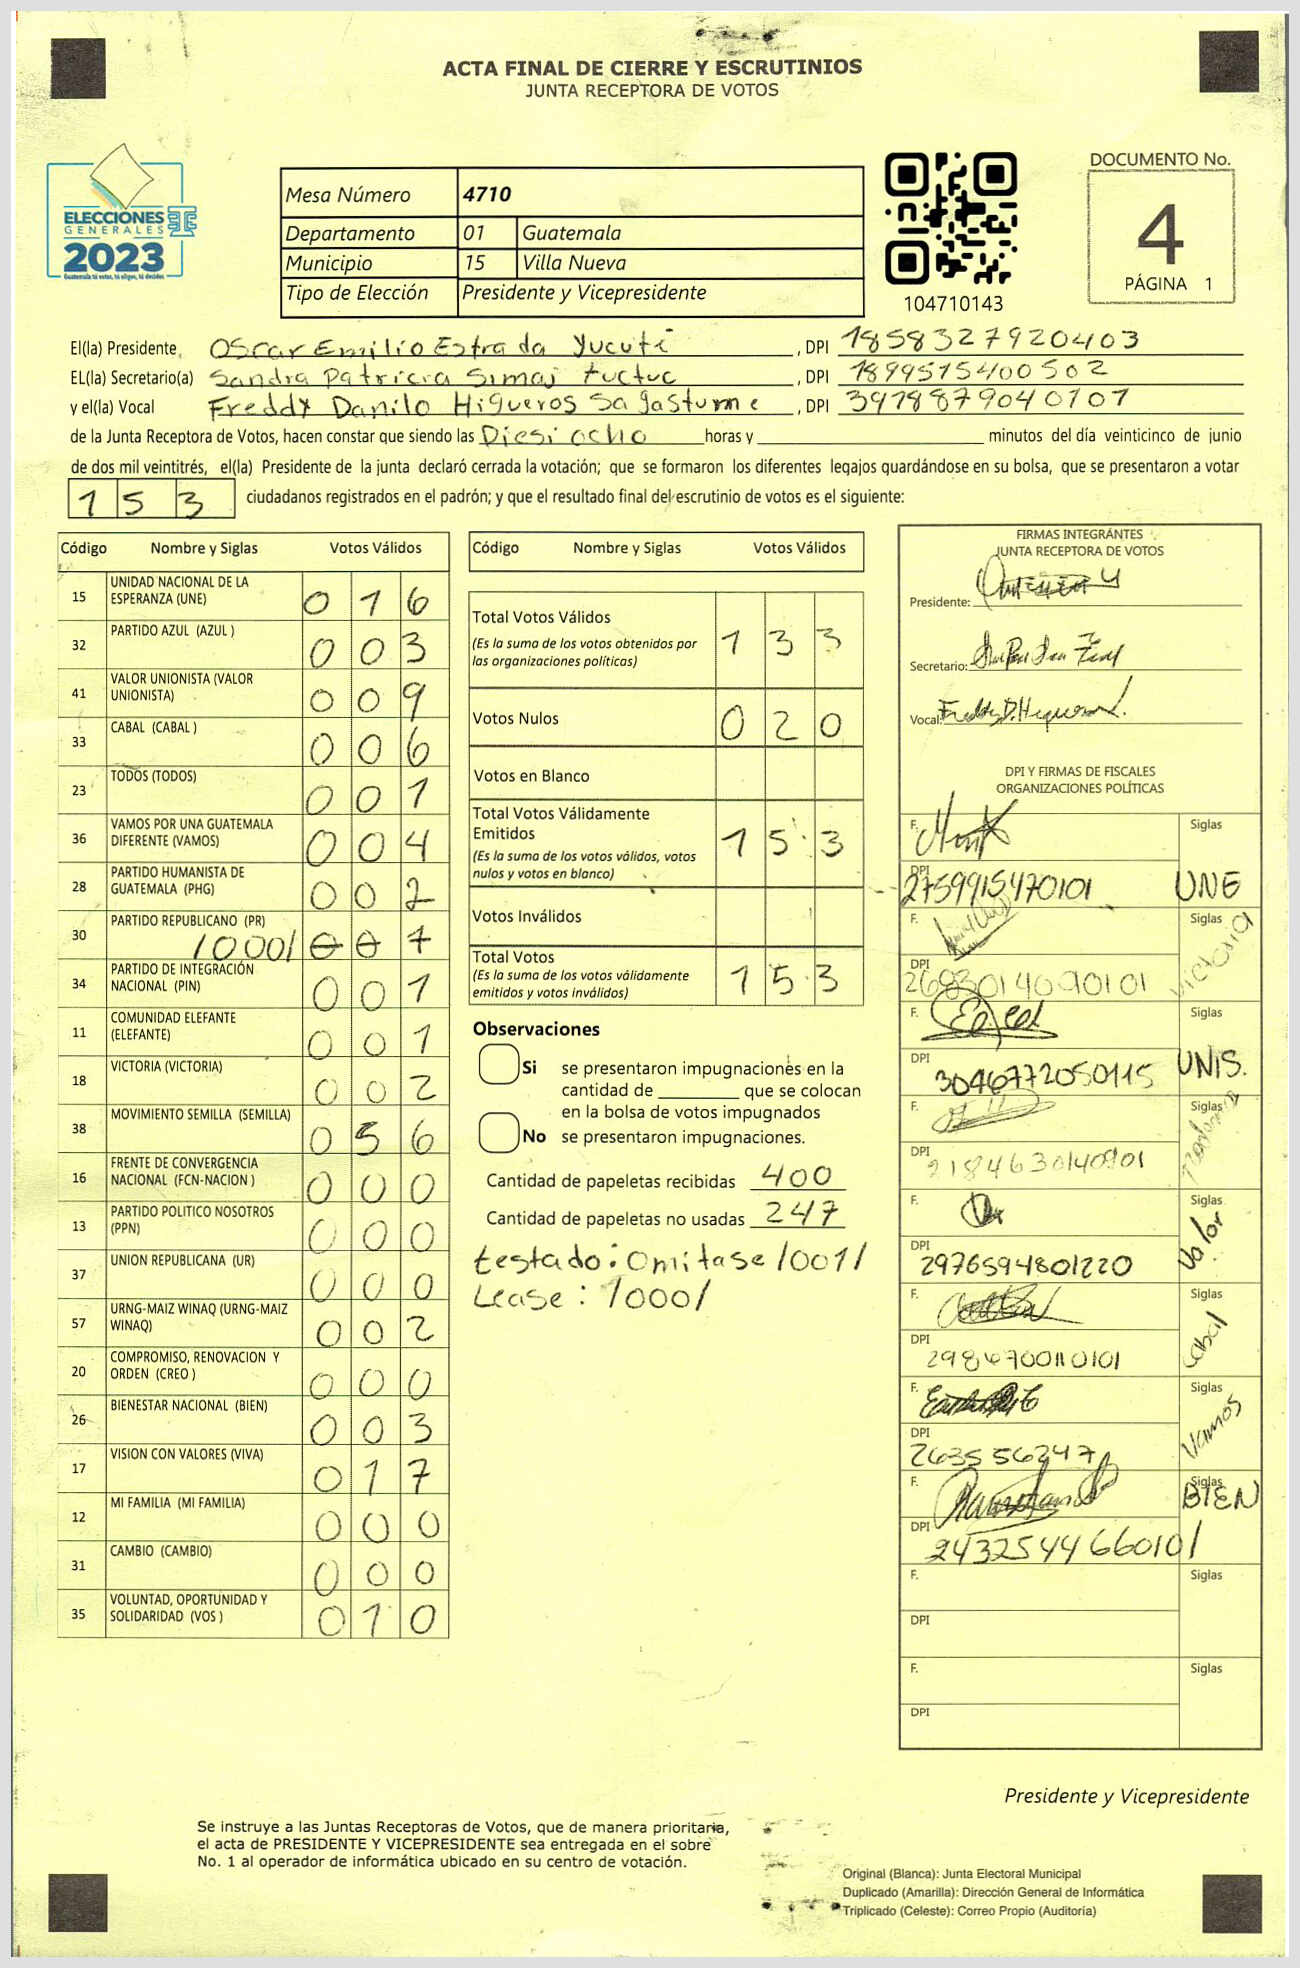 ACTA FINAL DE CIERRE Y ESCRUTINIOS
JUNTA RECEPTORA DE VOTOS
ELECCIONES
GENERALES
2023
Guatemala tú votas, tú eliges, tú decides
Mesa Número 4710
Departamento 01 Guatemala
Municipio 15 Villa Nueva
Tipo de Elección Presidente y Vicepresidente
104710143
DOCUMENTO No.
4
PÁGINA 1
El(la) Presidente, Oscar Emilio Estrada Yucuté, DPI 1858327920403
EL(la) Secretario(a) Sandra Patricia Simaj Tuctuc, DPI 1899515400502
y el(la) Vocal Freddy Danilo Higueros Sagastume, DPI 3918879040101
de la Junta Receptora de Votos, hacen constar que siendo las Diesi ocho horas y ____ minutos del día veinticinco de junio
de dos mil veintitrés, el(la) Presidente de la junta declaró cerrada la votación; que se formaron los diferentes legajos guardándose en su bolsa, que se presentaron a votar
153 ciudadanos registrados en el padrón; y que el resultado final del escrutinio de votos es el siguiente:
Código Nombre y Siglas Votos Válidos
15 UNIDAD NACIONAL DE LA ESPERANZA (UNE) 016
32 PARTIDO AZUL (AZUL ) 003
41 VALOR UNIONISTA (VALOR UNIONISTA) 009
33 CABAL (CABAL ) 006
23 TODOS (TODOS) 001
36 VAMOS POR UNA GUATEMALA DIFERENTE (VAMOS) 004
28 PARTIDO HUMANISTA DE GUATEMALA (PHG) 002
30 PARTIDO REPUBLICANO (PR) /000/ 001
34 PARTIDO DE INTEGRACIÓN NACIONAL (PIN) 001
11 COMUNIDAD ELEFANTE (ELEFANTE) 001
18 VICTORIA (VICTORIA) 002
38 MOVIMIENTO SEMILLA (SEMILLA) 056
16 FRENTE DE CONVERGENCIA NACIONAL (FCN-NACION ) 000
13 PARTIDO POLITICO NOSOTROS (PPN) 000
37 UNION REPUBLICANA (UR) 000
57 URNG-MAIZ WINAQ (URNG-MAIZ WINAQ) 002
20 COMPROMISO, RENOVACION Y ORDEN (CREO ) 000
26 BIENESTAR NACIONAL (BIEN) 003
17 VISION CON VALORES (VIVA) 017
12 MI FAMILIA (MI FAMILIA) 000
31 CAMBIO (CAMBIO) 000
35 VOLUNTAD, OPORTUNIDAD Y SOLIDARIDAD (VOS ) 010
Código Nombre y Siglas Votos Válidos
Total Votos Válidos 133
(Es la suma de los votos obtenidos por las organizaciones políticas)
Votos Nulos 020
Votos en Blanco
Total Votos Válidamente Emitidos 153
(Es la suma de los votos válidos, votos nulos y votos en blanco)
Votos Inválidos
Total Votos 153
(Es la suma de los votos válidamente emitidos y votos inválidos)
Observaciones
Si se presentaron impugnaciones en la
cantidad de ____ que se colocan
en la bolsa de votos impugnados
No se presentaron impugnaciones.
Cantidad de papeletas recibidas 400
Cantidad de papeletas no usadas 247
testado: Omitase /001/
Lease: /000/
FIRMAS INTEGRANTES
JUNTA RECEPTORA DE VOTOS
Presidente:
Secretario:
Vocal: Freddy D. Higueros
DPI Y FIRMAS DE FISCALES
ORGANIZACIONES POLÍTICAS
F. Siglas
DPI 2759915470101 UNE
F. Siglas
DPI 2683014090101 Victoria
F. Siglas
DPI 3046772050115 UNIS.
F. Siglas
DPI 2184630140901
F. Siglas
DPI 2976594801220 Valor
F. Siglas
DPI 2984700110101 Cabal
F. Siglas
DPI 263556247 Vamos
F. Siglas
DPI 2432544660101 BIEN
F. Siglas
DPI
F. Siglas
DPI
Presidente y Vicepresidente
Se instruye a las Juntas Receptoras de Votos, que de manera prioritaria,
el acta de PRESIDENTE Y VICEPRESIDENTE sea entregada en el sobre
No. 1 al operador de informática ubicado en su centro de votación.
Original (Blanca): Junta Electoral Municipal
Duplicado (Amarilla): Dirección General de Informática
Triplicado (Celeste): Correo Propio (Auditoría)